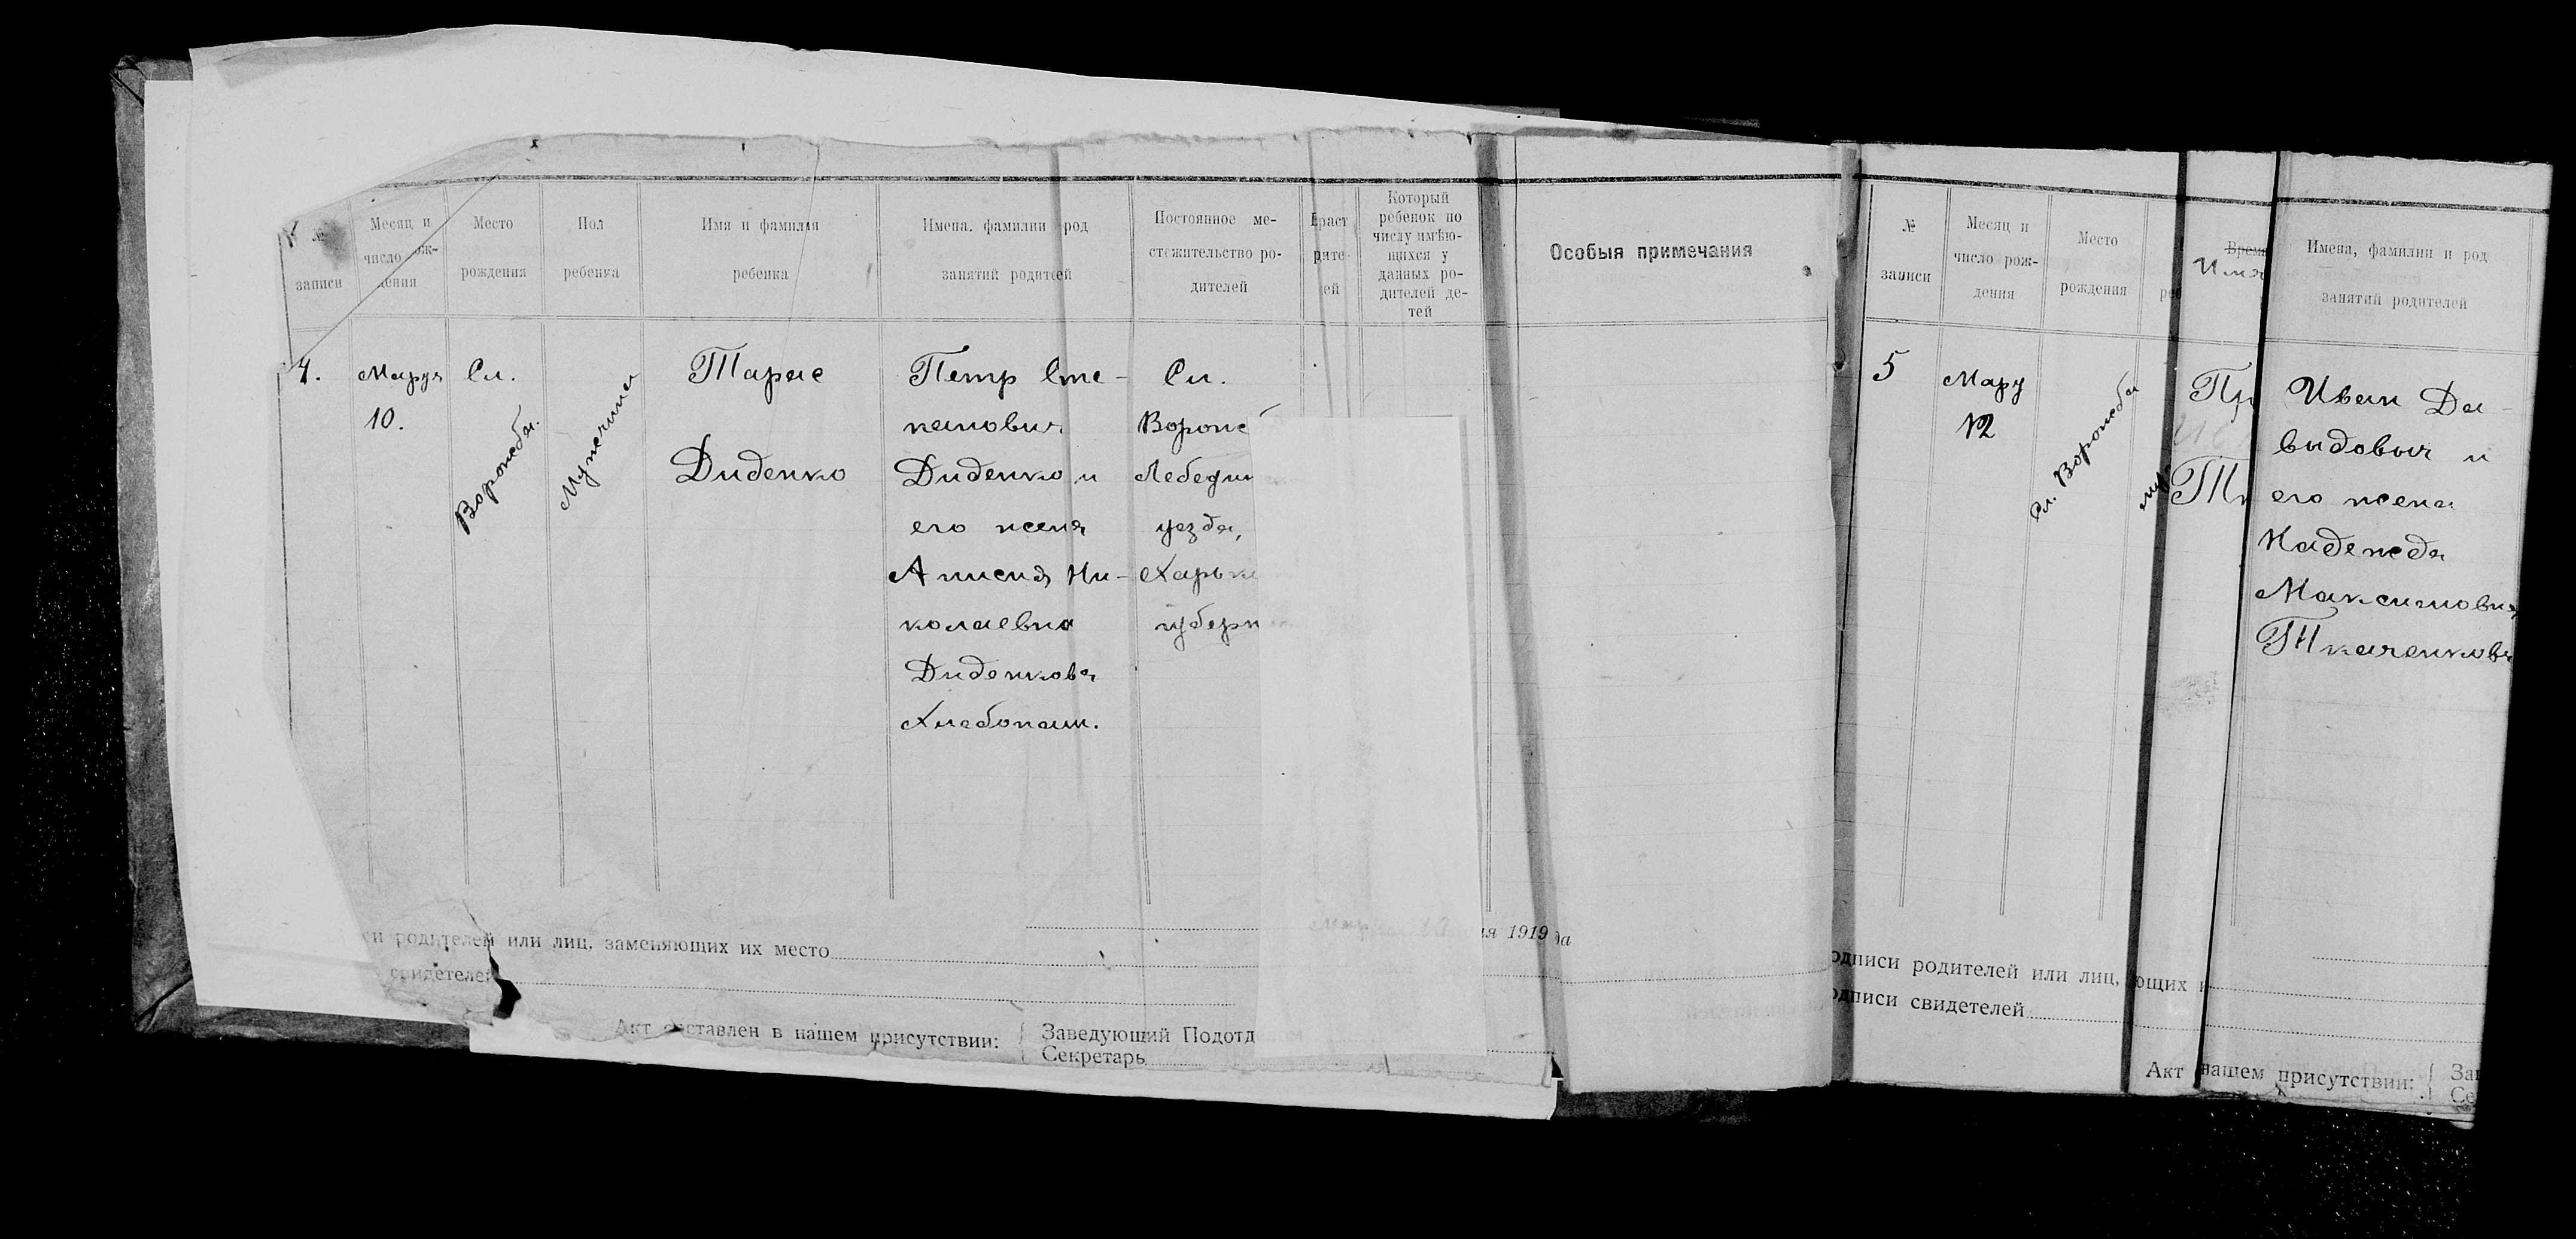 №
записи
Месяц и
число рож-
дения
Место
рождения
Пол
ребенка
Имя и фамилия
ребенка
Имена, фамилии род
занятий родителей
Постоянное ме-
стожительство ро-
дителей
Который
ребенок по
числу имѣю-
щихся у
данных ро-
дителей де-
тей
Особыя примечания
4.
Марта
10.
Сл.
Ворожба.
Мужчина
Тарас
Диденко
Петр Сте-
панович
Диденко и
его жена
Анисия Ни-
колаевна
Диденкова
Хлебопаш.
Сл.
Ворож
Лебедин
уезда,
Харьк
губерн
родителей или лиц, заменяющих их место
свидетелей
1919
Акт составлен в нашем присутствии:
Заведующий Подотд
Секретарь
№
записи
Месяц и
число рож-
дения
Место
рождения
Имя
Имена, фамилии и род
занятий родителей
5
Март
12
Сл. Ворожба
Иван Да-
видович и
его жена
Надежда
Максимовна
Ткаченкова
одписи родителей или лиц,
одписи свидетелей
Акт
нашем присутствии: